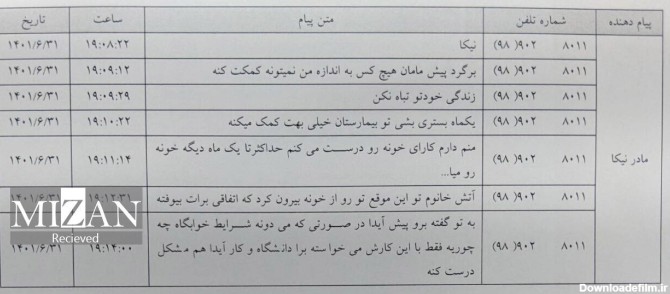 پیام دهنده شماره تلفن متن پیام ساعت تاریخ
مادر نیکا
۸۰۱۱ ۹۰۲ (۹۸) نیکا ۱۹:۰۸:۲۲ ۱۴۰۱/۶/۳۱
۸۰۱۱ ۹۰۲ (۹۸) برگرد پیش مامان هیچ کس به اندازه من نمیتونه کمکت کنه ۱۹:۰۹:۱۲ ۱۴۰۱/۶/۳۱
۸۰۱۱ ۹۰۲ (۹۸) زندگی خودتو تباه نکن ۱۹:۰۹:۲۹ ۱۴۰۱/۶/۳۱
۸۰۱۱ ۹۰۲ (۹۸) یکماه بستری بشی تو بیمارستان خیلی بهت کمک میکنه ۱۹:۱۰:۲۲ ۱۴۰۱/۶/۳۱
۸۰۱۱ ۹۰۲ (۹۸) منم دارم کارای خونه رو درست می کنم حداکثرتا یک ماه دیگه خونه ۱۹:۱۱:۱۴ ۱۴۰۱/۶/۳۱
رو میا...
۸۰۱۱ ۹۰۲ (۹۸) آتش خانوم تو این موقع تو رو از خونه بیرون کرد که اتفاقی برات بیوفته ۱۹:۱۲:۳۱ ۱۴۰۱/۶/۳۱
به تو گفته برو پیش آیدا در صورتی که می دونه شرایط خوابگاه چه
۸۰۱۱ ۹۰۲ (۹۸) جوریه فقط با این کارش می خواسته برا دانشگاه و کار آیدا هم مشکل ۱۹:۱۴:۰۰ ۱۴۰۱/۶/۳۱
درست کنه
MIZAN
Recieved
Downloadefilm.ir